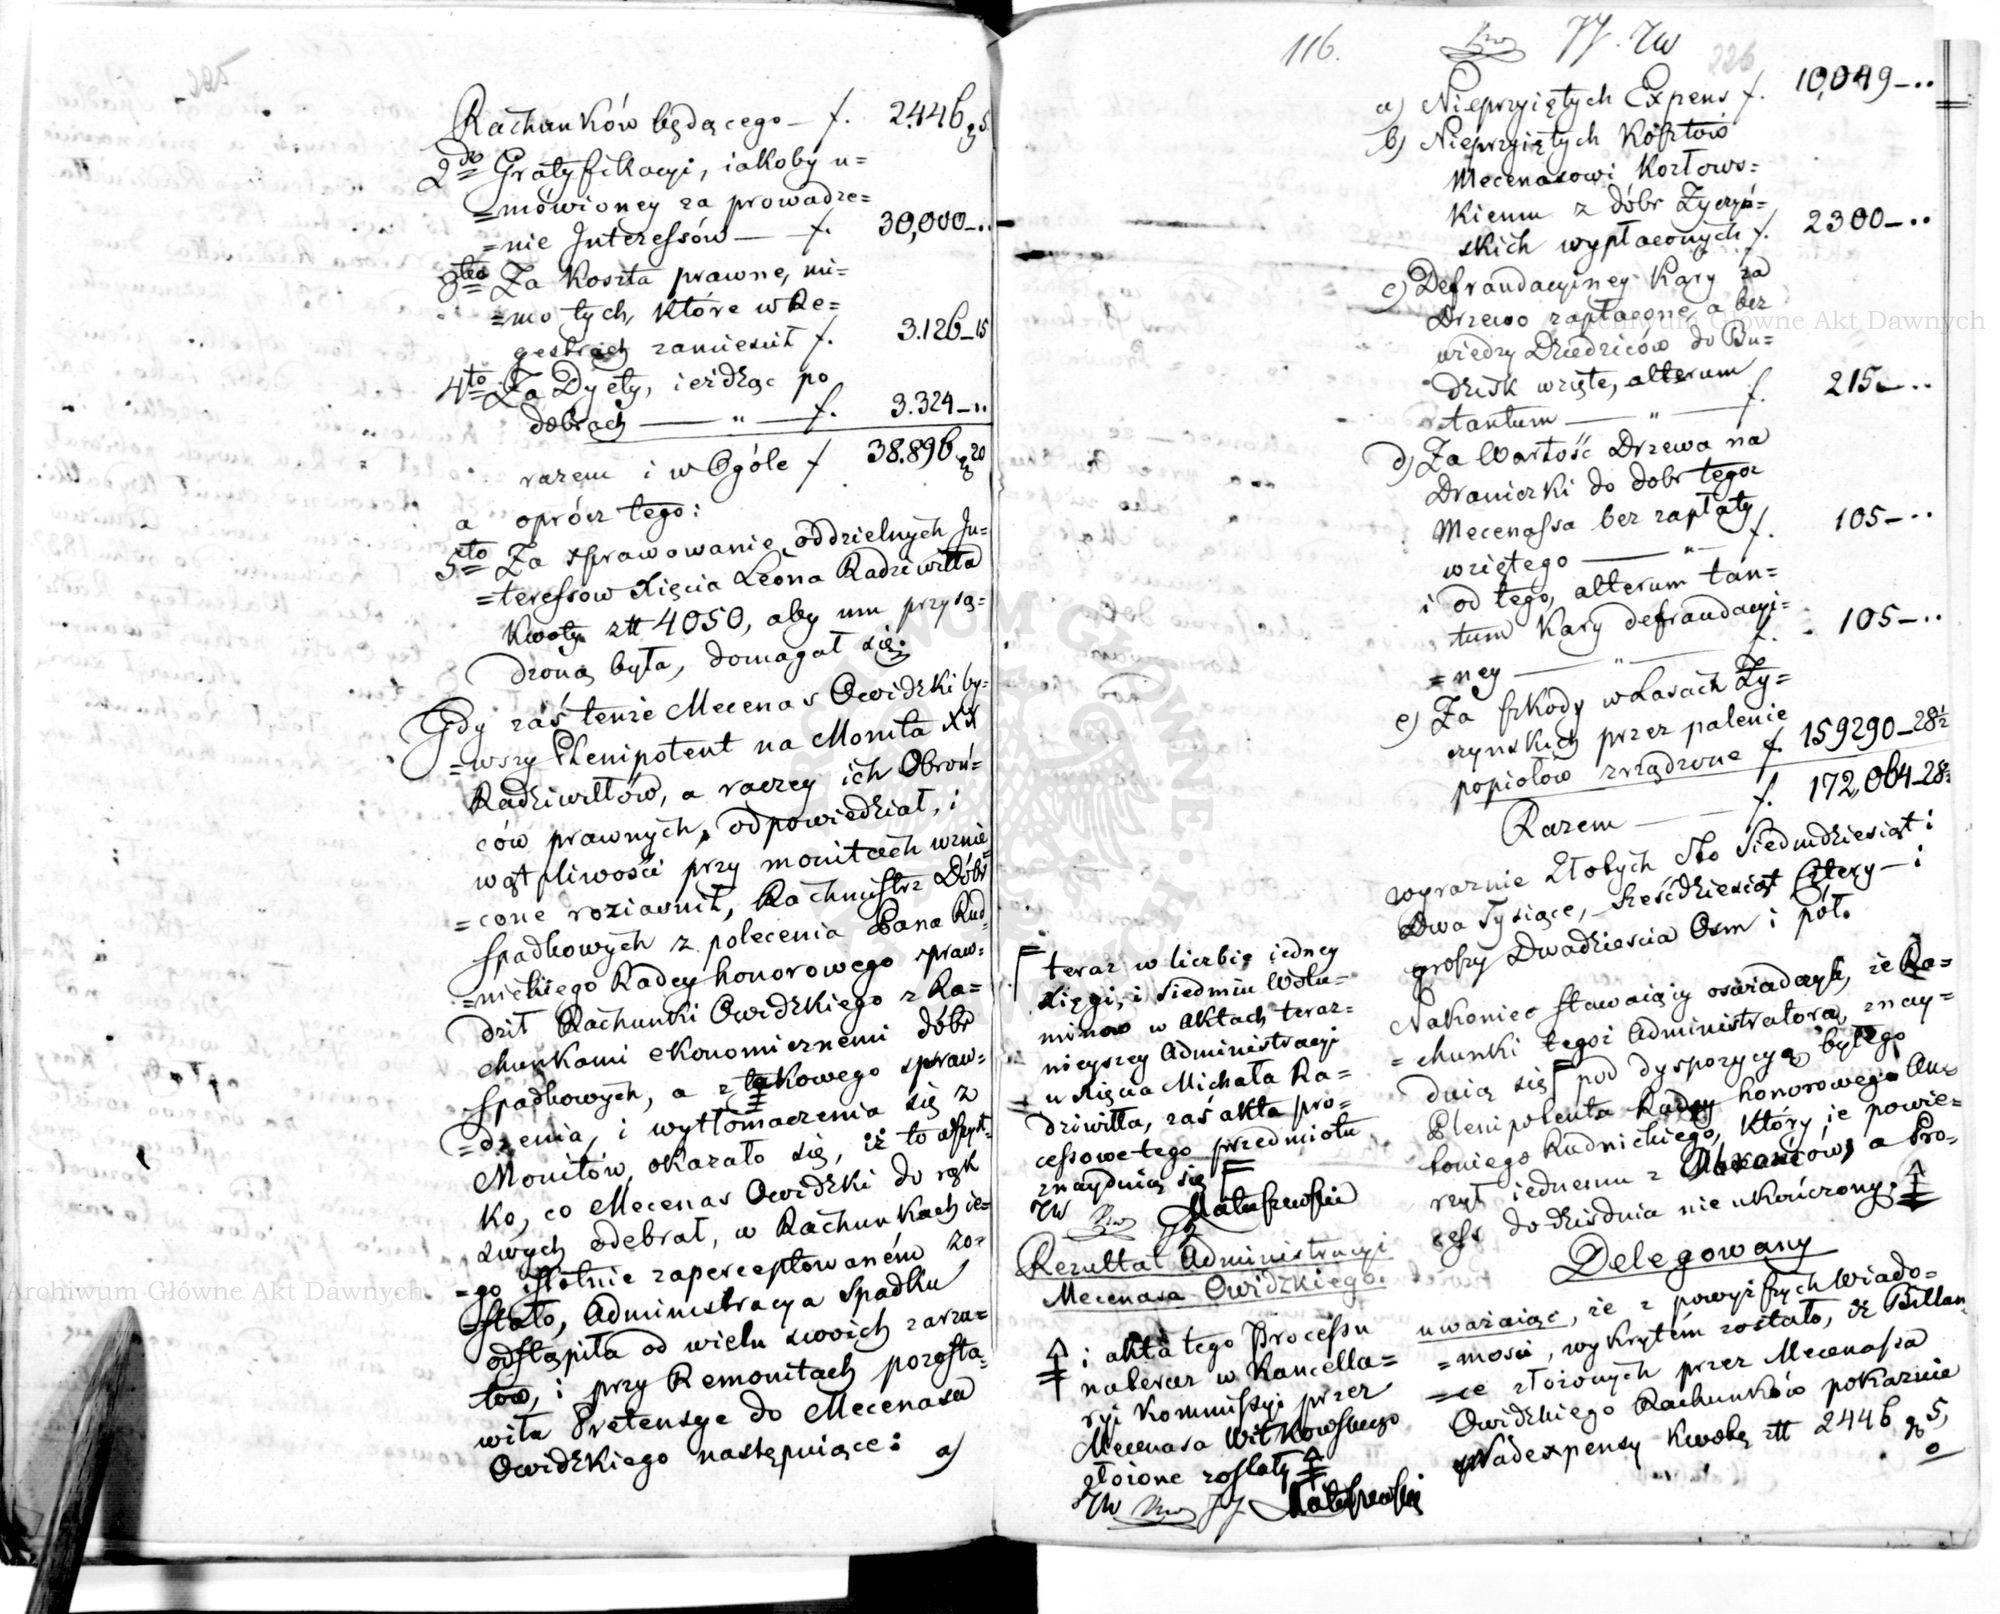 225
Rachunków będącego — f. 2446 g 5
2do Gratyfikacyi, iakoby u=
=mówioney za prowadze=
=nie Interessów — f. 30,000 - ..
3tio Za koszta prawne, mi=
=mo tych, które w Re=
gestrach zamieścił f. 3.126 - 15
4to Za Dyety, ieżdżąc po
dobrach — " — f. 3.324 - ..
razem i w Ogóle f 38.896 g 20
a oprócz tego:
5to Za sprawowanie oddzielnych In=
=teressów Xięcia Leona Radziwiłła
kwoty ztt 4050, aby mu przysą=
dzoną była, domagał się.
Gdy zaś tenże Mecenas Owidzki by=
=wszy Plenipotent na Monita XX
Radziwiłłów, a raczey ich Obroń=
ców prawnych, odpowiedział, i
wątpliwości przy monitach wznie=
=cone roziaśnił, Rachmistrz Dóbr
spadkowych z polecenia Pana Rud
=nickiego Radcy honorowego spraw=
dził Rachunki Owidzkiego z Ra=
chunkami ekonomicznemi dóbr
spadkowych, a z takowego spraw=
=dzenia, i wytłomaczenia się z
Monitów, okazało się, iż to wszyst=
ko, co Mecenas Owidzki do rąk
swych odebrał, w Rachunkach ie=
=go istotnie zaperceptowaném zo=
=stało, Administracya Spadku
odstąpiła od wielu swoich zarzu=
tów, i przy Remonitach pozosta=
wiła Pretensye do Mecenasa
Owidzkiego następuiące: a)
116. JJ. JW
226
a) Nieprzyiętych Expens f. 10,049 - ..
b) Nieprzyiętych Kosztów
Mecenasowi Kozłows=
kiemu z dóbr Życzyń=
skich wypłaconych f. 2300 - ..
c) Defraudacyiney Kary za
Drzewo zapłacone, a bez
wiedzy Dziedziców do Bu=
dzisk wzięte, alterum
tantum — " — f. 215 - ..
d) Za Wartość Drzewa na
Draniczki do dobr tegoż
Mecenassa bez zapłaty
wziętego — " — f. 105 - ..
i od tego, alterum tan=
tum Kary defraudacyi=
=ney — " — f. 105 - ..
e) Za szkody w Lasach Ży=
czynskich przez palenie
popiołów zrządzone f. 159290 - 28½
Razem — f. 172,064 - 28½
wyraznie Złotych Sto Siedmdziesiąt i
Dwa Tysiące, Sześćdziesiąt Cztery — i
groszy Dwadzieścia Osm i pół.
Nakoniec stawaiący oświadczyli, że Ra=
=chunki tegoż Administratora, znay=
duią się pod dyspozycyą byłego
Plenipotenta Radcy honorowego An=
toniego Rudnickiego, który ie powie=
rzył iednemu z Obrońców, a Pro=
cess do dziś dnia nie ukończony.
Delegowany
uważaiąc, że z powyższych Wiado=
=mości, wykrytém zostało, iż Billan
=se złożonych przez Mecenassa
Owidzkiego Rachunków pokazuie
Nadexpensy kwotę ztt 2446 g 5,
teraz w liczbie iedney
Xięgi, i Siedmiu Wolu=
minow w Aktach teraz=
nieyszey Administracyi
u Xięcia Michała Ra=
dziwiłła, zaś akta pro=
cessowe tego przedmiotu
znayduią się
JW JJ Matuszewski
Rezultat Administracyi
Mecenasa Owidzkiego.
i akta tego Processu
nateraz w Kancella=
ryi Kommissyi przez
Mecenasa Witkowskiego
złożone zostały
JW JJ Matuszewski
Archiwum Główne Akt Dawnych
Archiwum Główne Akt Dawnych
ARCHIWUM GŁÓWNE